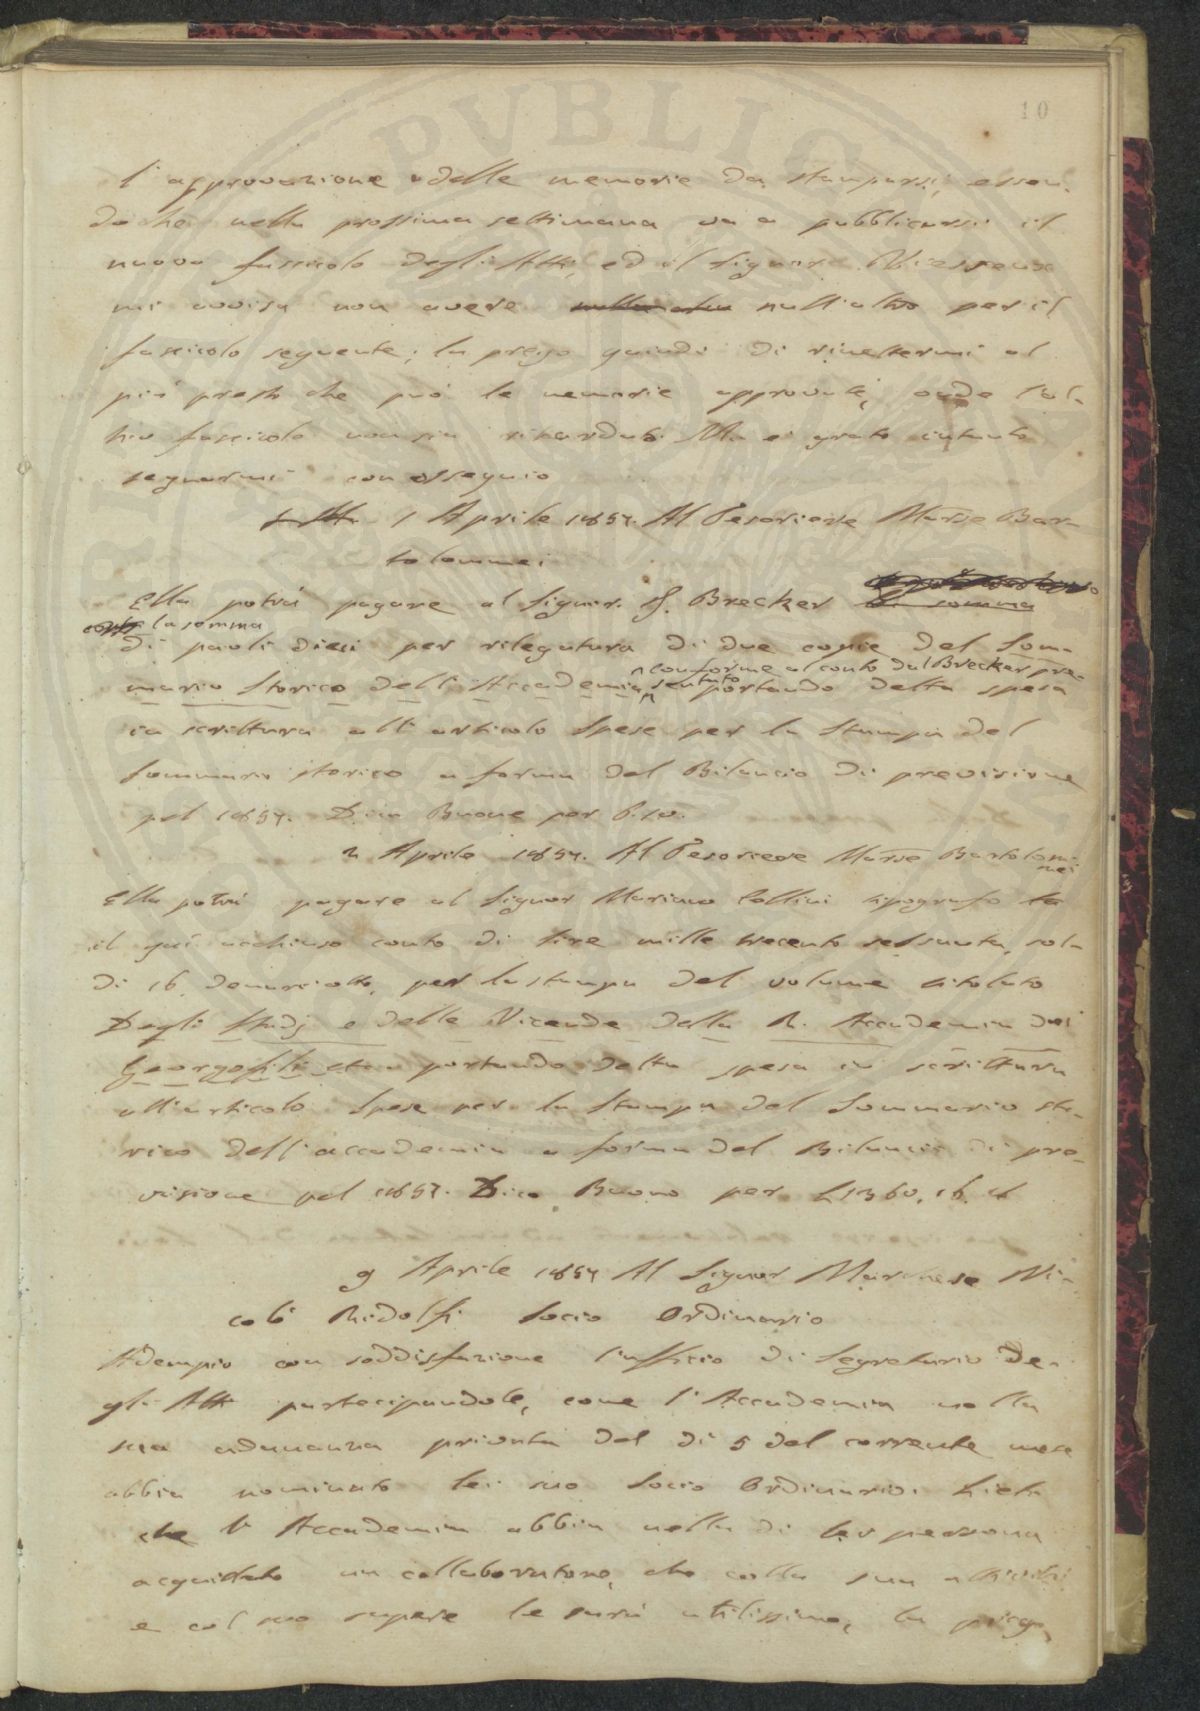 10
l'approvazione delle memorie da stamparsi, essen-
doche nella prossima settimana va a pubblicarsi il
nuovo fascicolo degli Atti, ed il Signore Vieusseux
mi avvisa non avere null'altro per il
fascicolo seguente; la prego quindi di rimettermi al
più presto che può le memorie approvate, onde l'al-
tro fascicolo non sia ritardato. Ma è grato intanto
segnarmi con ossequio
1 Aprile 1857. Al Tesoriere Marse Bar-
tolommei
Ella potrà pagare al Signor. F. Brecker la somma
la somma
di paoli dieci per rilegatura di due copie del Som-
conforme al conto dal Brecker pre-
mario Storico dell'Accademia, sentato portando detta spesa
in scrittura all'articolo Spese per la Stampa del
Sommario storico a forma del Bilancio di previsione
pel 1857. Dico Buone per P. 10.
2 Aprile 1857. Al Tesoriere Marse Bartolom-
mei
Ella potrà pagare al Signor Mariano Cellini tipografo la
il quì acchiuso conto di lire mille trecento sessanta, sol-
di 16. denari otto, per la stampa del volume titolato
Degli Studj e delle Vicende della R. Accademia dei
Georgofili etc. portando detta spesa in scrittura
all'articolo Spese per la Stampa del Sommario sto-
rico dell'accademia a forma del Bilancio di pre-
visione pel 1857. Dico Buono per L 1360. 16. 8
9 Aprile 1857 Al Signor Marchese Ni-
colò Ridolfi Socio Ordinario
Adempio con soddisfazione l'ufficio di Segretario De-
gli Atti partecipandole, come l'Accademia nella
sua adunanza privata del dì 5 del corrente mese
abbia nominato lei suo Socio Ordinario. Lieta
che l'Accademia abbia nella di lei persona
acquistato un collaboratore, che colla sua attività
e col suo sapere le sarà utilissimo, la prego,